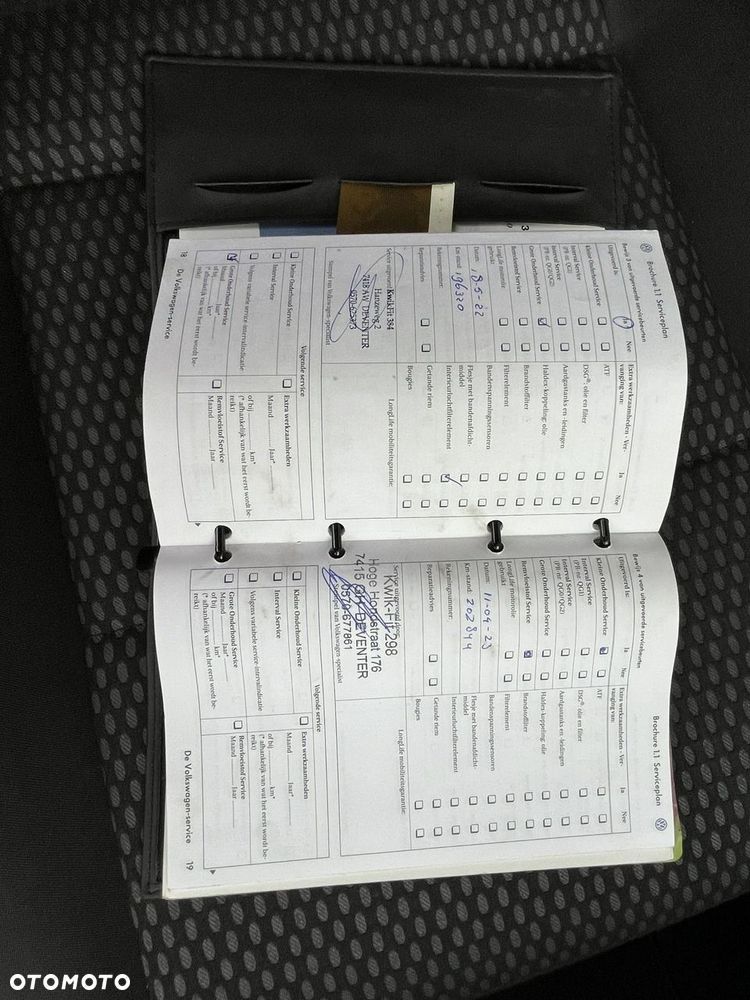 Brochure 1.1 Serviceplan
Bewijs 3 van uitgevoerde servicebeurten
Uitgevoerd is:
Ja
Nee
Kleine Onderhoud Service
Interval Service
(PR-nr. QG1)
Interval Service
(PR-nr. QG0/QG2)
Grote Onderhoud Service
Remvloeistof Service
LongLife motorolie
gebruikt
Datum: 18-5-22
Km-stand: 196320
Rekeningnummer:
Reparatieadvies
Service uitgevoerd door:
KwikFit 384
Hanzeweg 2
7418 AW DEVENTER
0570-625373
Stempel van Volkswagen-specialist
Extra werkzaamheden - Ver-
vanging van:
Ja
Nee
ATF
DSG®: olie en filter
Aardgastanks en -leidingen
Haldex-koppeling: olie
Brandstoffilter
Filterelement
Bandenspanningssensoren
Flesje met bandenafdicht-
middel
Interieurluchtfilterelement
Getande riem
Bougies
LongLife mobiliteitsgarantie:
Volgende service
Kleine Onderhoud Service
Interval Service
Volgens variabele service-intervalindicatie
Grote Onderhoud Service
Maand Jaar*
of bij km*
(* afhankelijk van wat het eerst wordt be-
reikt)
Extra werkzaamheden
Maand Jaar*
of bij km*
(* afhankelijk van wat het eerst wordt be-
reikt)
Remvloeistof Service
Maand Jaar
18 De Volkswagen-service
Brochure 1.1 Serviceplan
Bewijs 4 van uitgevoerde servicebeurten
Uitgevoerd is:
Ja
Nee
Kleine Onderhoud Service
Interval Service
(PR-nr. QG1)
Interval Service
(PR-nr. QG0/QG2)
Grote Onderhoud Service
Remvloeistof Service
LongLife motorolie
gebruikt
Datum: 11-04-23
Km-stand: 202844
Rekeningnummer:
Reparatieadvies
Service uitgevoerd door:
KWIK-Fit 298
Hoge Hondstraat 176
7415 DEVENTER
0570-677861
Stempel van Volkswagen-specialist
Extra werkzaamheden - Ver-
vanging van:
Ja
Nee
ATF
DSG®: olie en filter
Aardgastanks en -leidingen
Haldex-koppeling: olie
Brandstoffilter
Filterelement
Bandenspanningssensoren
Flesje met bandenafdicht-
middel
Interieurluchtfilterelement
Getande riem
Bougies
LongLife mobiliteitsgarantie:
Volgende service
Kleine Onderhoud Service
Interval Service
Volgens variabele service-intervalindicatie
Grote Onderhoud Service
Maand Jaar*
of bij km*
(* afhankelijk van wat het eerst wordt be-
reikt)
Extra werkzaamheden
Maand Jaar*
of bij km*
(* afhankelijk van wat het eerst wordt be-
reikt)
Remvloeistof Service
Maand Jaar
De Volkswagen-service 19
OTOMOTO